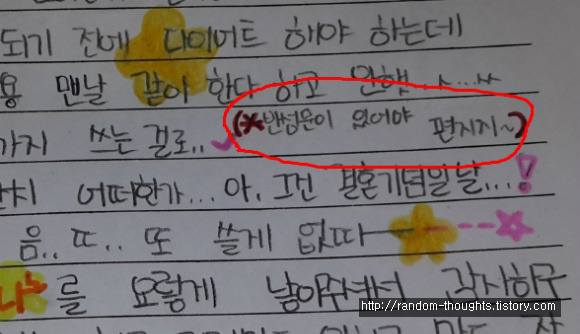 되기 전에 다이어트 해야 하는데
용 맨날 같이 한다 하고 안해
(*반성문이 없어야 편지지~)
가지 쓰는 걸로..
어떠한가... 아. 그건 결혼기념일날...!
음.. 또.. 또 쓸게 없따
나는를 요렇게 낳아주셔서 감사하구
http://random-thoughts.tistory.com